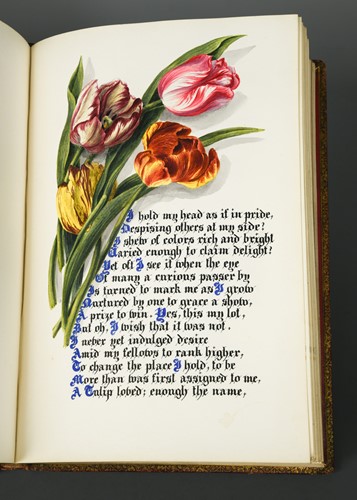 I hold my head as if in pride,
Despising others at my side!
I shew of colors rich and bright
Varied enough to claim delight!
Yet oft I see it when the eye
Of many a curious passer by
Is turned to mark me as I grow
Nurtured by one to grace a show,
A prize to win. Yes, this my lot,
But oh, I wish that it was not.
I never yet indulged desire
Amid my fellows to rank higher,
To change the place I hold, to be
More than was first assigned to me,
A Tulip loved; enough the name,